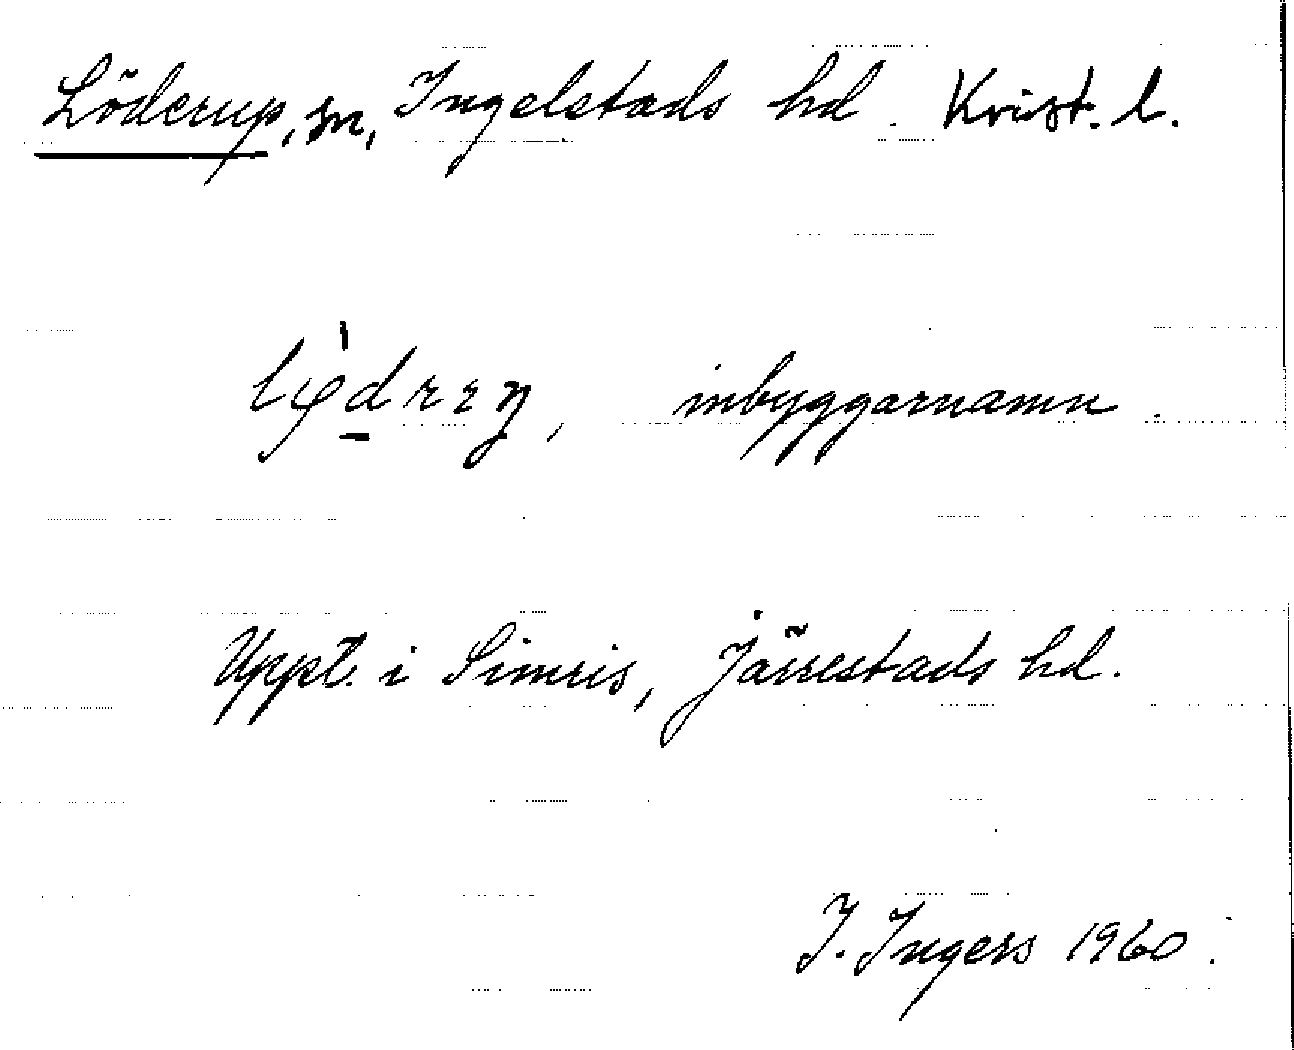 Löderup, sn, Ingelstads hd. Krist. l.
inbyggarnamn.
Uppt. i Simris, Järrestads hd.
I. Ingers 1960.